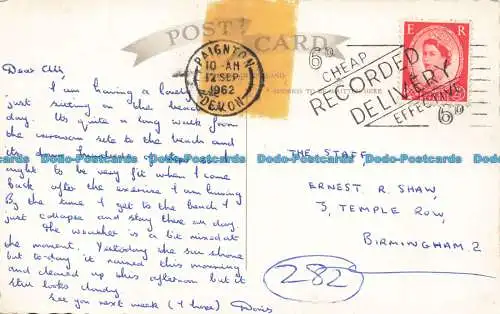 POST CARD
PAIGNTON
10-AM
12 SEP
1962
DEVON
6D
CHEAP
RECORDED
DELIVERY
EFFECTIVE
6D
E R
Dear All,
I am having a lovely
just sitting on the beach
day. Its quite a long walk from
the caravan site to the beach and
its down hundreds
ought to be very fit when I come
back after the exercise I am having
By the time I get to the beach I
just collapse and stay there all day.
The weather is a bit mixed at
the moment. Yesterday the sun shone
but to-day it rained this morning
and cleared up this afternoon but it
still looks cloudy
See you next week (I hope) Doris
THE STAFF
ERNEST R. SHAW,
5, TEMPLE ROW,
BIRMINGHAM. 2
282
Dado-Postcards Dado-Postcards Dado-Postcards Dado-Postcards